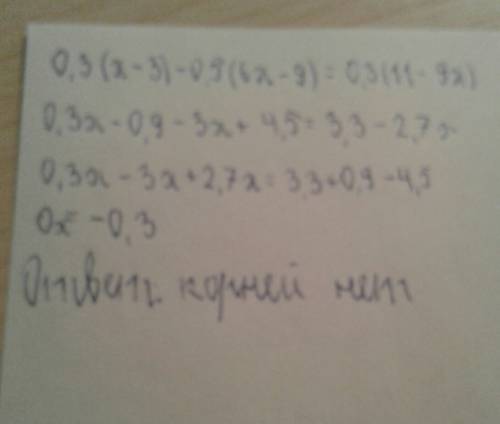 0,3(x-3)-0,5(6x-9)=0,3(11-9x)
0,3x-0,9-3x+4,5=3,3-2,7x
0,3x-3x+2,7x=3,3+0,9-4,5
0x=-0,3
Ответ. корней нет